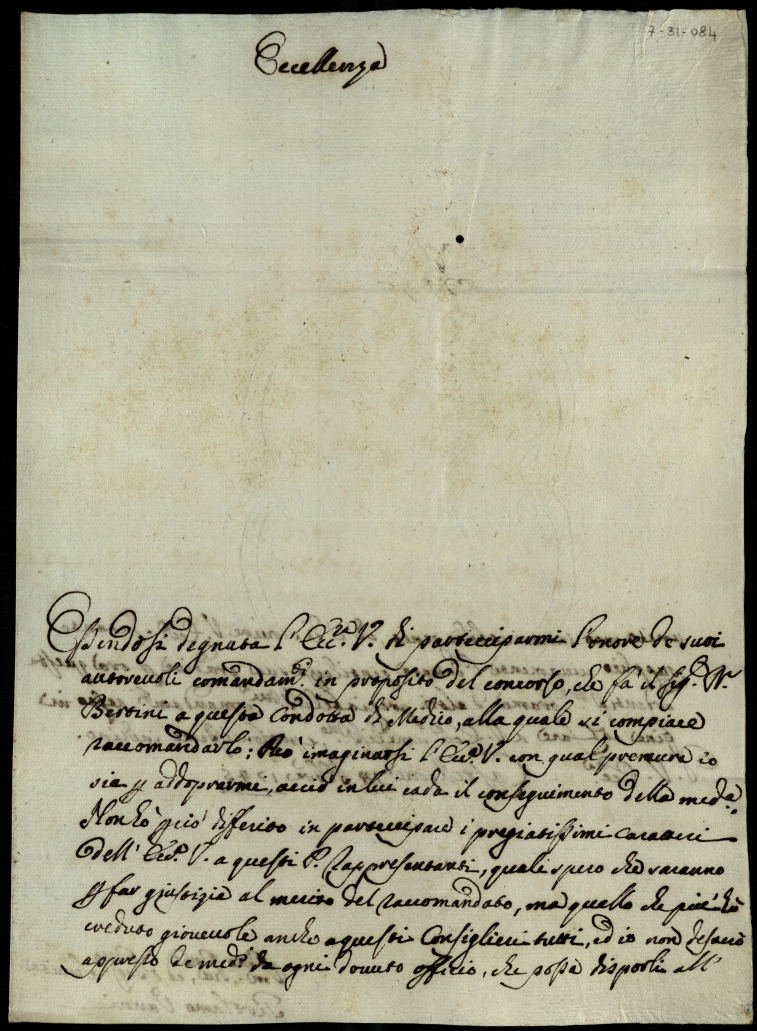 7-31-084
Eccellenza
Essendosi degnata l'Ecc.ª V. di parteciparmi l'onore de suoi
autorevoli comandam.ti in proposito del concorso, che fà il Sig.r N.
Bertini a questa Condotta di Medico, alla quale si compiace
raccomandarlo; Può imaginarsi l'Ecc.ª V. con qual premura io
sia p adoprarmi, acciò in lui cada il conseguimento della med.ª
Non hò pciò differito in partecipare i pregiatissimi caratteri
dell'Ecc.ª V. a questi P. Rappresentanti, quali spero che saranno
p far giustizia al merito del raccomandato, ma quello che più hò
creduto giovevole anche a questi Consiglieri tutti, ed io non lascio
appresso de med.i da ogni dovuto officio, che possa disporli all'